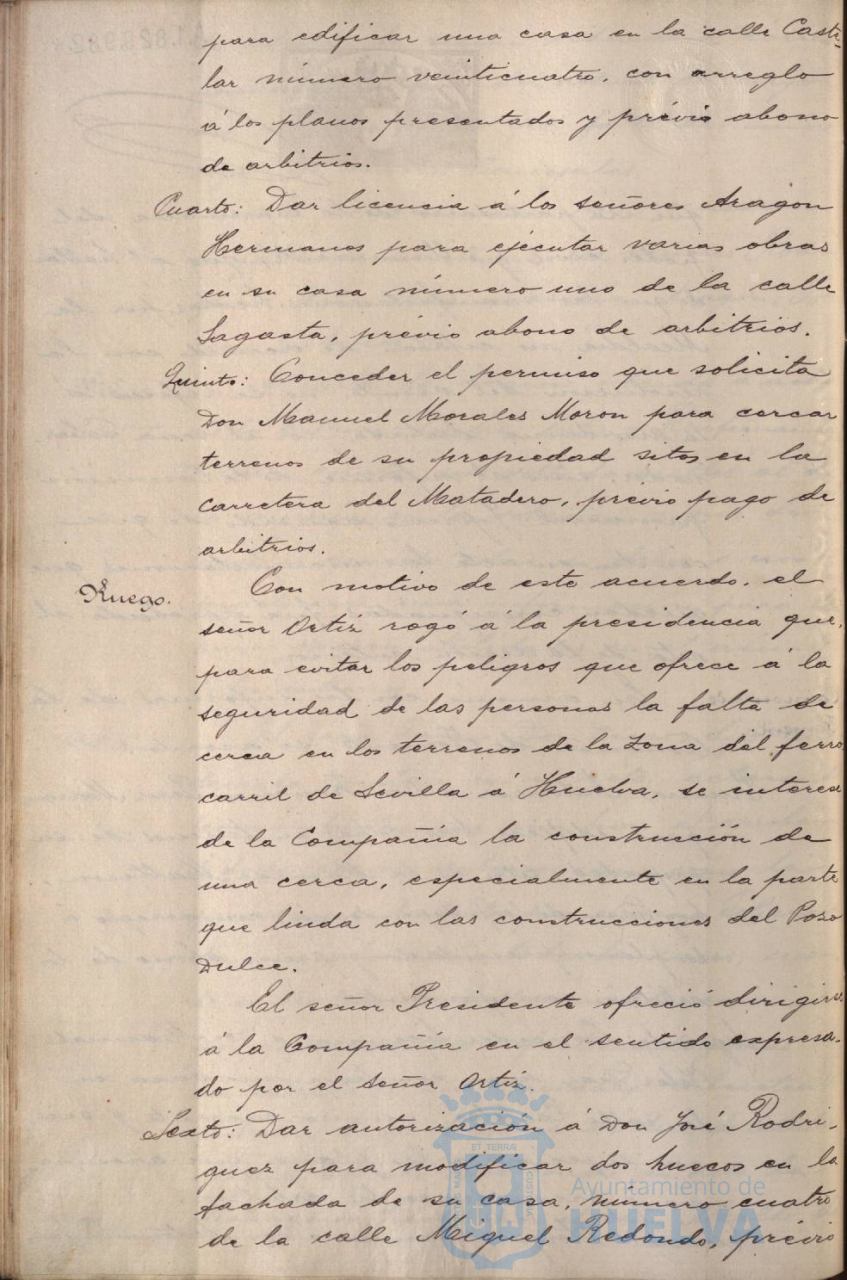 para edificar una casa en la calle Caste-
lar número veinticuatro, con arreglo
á los planos presentados y prévio abono
de arbitrios.
Cuarto: Dar licencia á los señores Aragon
Hermanos para ejecutar varias obras
en su casa número uno de la calle
Sagasta, prévio abono de arbitrios.
Quinto: Conceder el permiso que solicita
Don Manuel Morales Moron para cercar
terrenos de su propiedad sitos en la
carretera del Matadero, prévio pago de
arbitrios.
Ruego. Con motivo de este acuerdo, el
señor Ortiz rogó á la presidencia que,
para evitar los peligros que ofrece á la
seguridad de las personas la falta de
cerca en los terrenos de la zona del ferro
carril de Sevilla á Huelva, se interese
de la Compañia la construcción de
una cerca, especialmente en la parte
que linda con las construcciones del Pozo
Dulce.
El señor Presidente ofreció dirigirse
á la Compañia en el sentido expresa-
do por el señor Ortiz.
Sexto: Dar autorización á Don José Rodri-
guez para modificar dos huecos en la
fachada de su casa, número cuatro
de la calle Miguel Redondo, prévio
Ayuntamiento de
HUELVA